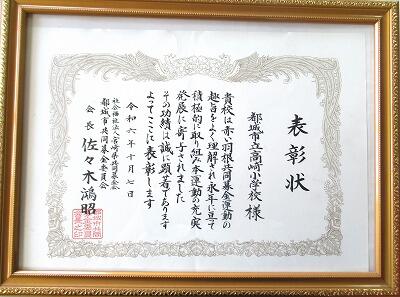 表彰状
都城市立高崎小学校 様
貴校は赤い羽根共同募金運動の
趣旨をよく理解され永年に亘って
積極的に取り組み本運動の充実
発展に寄与されました
その功績は誠に顕著であります
よってここに表彰します
令和六年十月七日
社会福祉法人宮崎県共同募金会
都城市共同募金委員会
会長 佐々木鴻昭